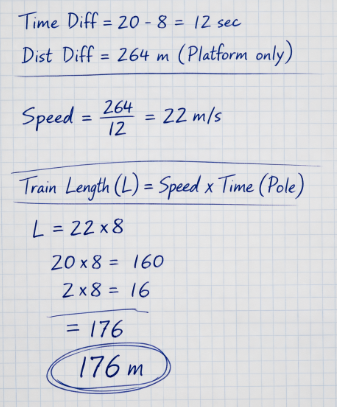 Time Diff = 20 - 8 = 12 sec
Dist Diff = 264 m (Platform only)
Speed = 264/12 = 22 m/s
Train Length (L) = Speed x Time (Pole)
L = 22 x 8
20 x 8 = 160
2 x 8 = 16
= 176
176 m